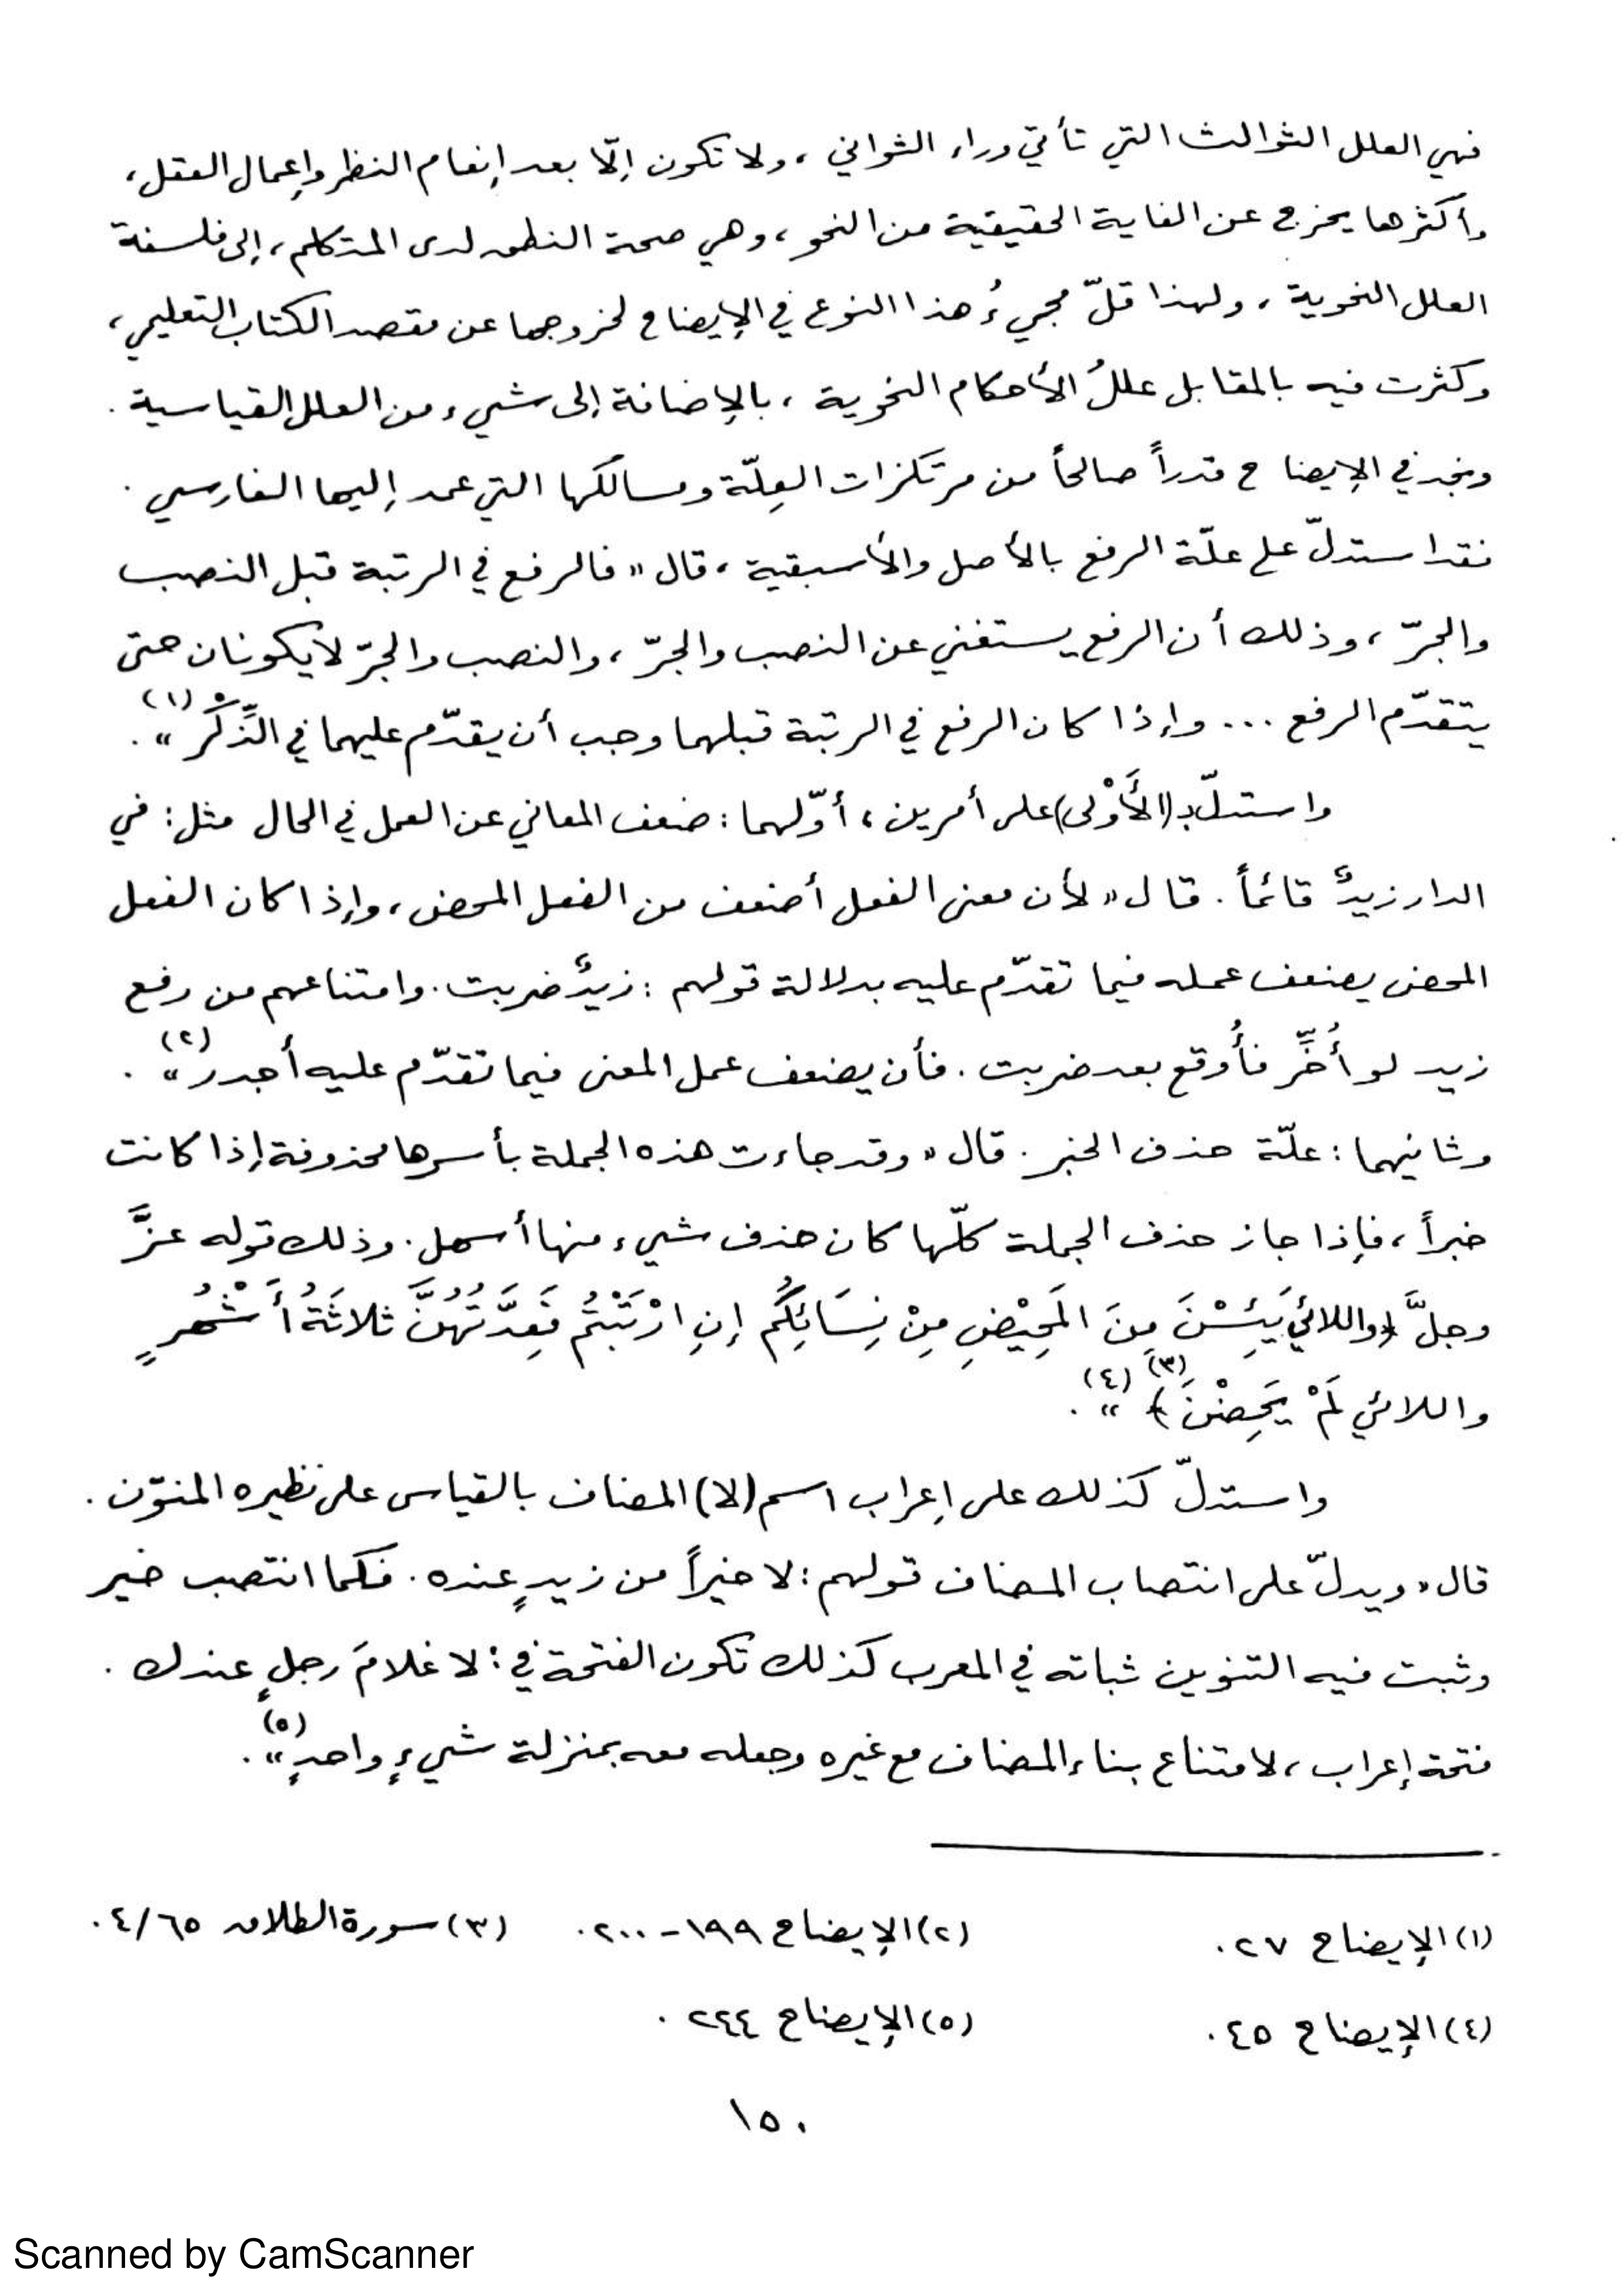 فهي العلل الثوالث التي تأتي وراء الثواني ، ولا تكون إلّا بعد إنعام النظر وإعمال العقل ،
وأكثرها يخرج عن الغاية الحقيقية من النحو ، وهي صحة النطق لدى المتكلم ، إلى فلسفة
العلل النحوية ، ولهذا قلّ مجيءُ هذا النوع في الإيضاح لخروجها عن مقصد الكتاب التعليمي ،
وكثرت فيه بالمقابل عللُ الأحكام النحوية ، بالإضافة إلى شيء من العلل القياسية .
ونجد في الإيضاح قدراً صالحاً من مرتكزات العِلّة ومسالكها التي عمد إليها الفارسي .
فقد استدلّ على علّة الرفع بالأصل والأسبقية ، قال « فالرفع في الرتبة قبل النصب
والجرّ ، وذلك أن الرفع يستغني عن النصب والجرّ ، والنصب والجرّ لا يكونان حتى
يتقدّم الرفع ... وإذا كان الرفع في الرتبة قبلهما وجب أن يقدّم عليهما في الذِّكْر » (١) .
واستدلّ بـ (الأَوْلى) على أمرين ، أوّلهما : ضعف المعاني عن العمل في الحال مثل : في
الدار زيدٌ قائماً . قال « لأن معنى الفعل أضعف من الفعل المحض ، وإذا كان الفعل
المحض يضعف عمله فيما تقدّم عليه بدلالة قولهم : زيدٌ ضربت . وامتناعهم من رفع
زيد لو أُخِّر فأُوقع بعد ضربت . فأن يضعف عمل المعنى فيما تقدّم عليه أجدر » (٢) .
وثانيهما : علّة حذف الخبر . قال « وقد جاءت هذه الجملة بأسرها محذوفة إذا كانت
خبراً ، فإذا جاز حذف الجملة كلّها كان حذف شيء منها أسهل . وذلك قوله عزَّ
وجلَّ ﴿واللائي يَئِسْنَ مِنَ المَحِيْضِ مِنْ نِسَائِكُم إنِ ارْتَبْتُم فَعِدَّتُهُنَّ ثلاثَةُ أَشْهُرٍ
واللائي لَمْ يَحِضْنَ﴾ (٣) » (٤) .
واستدلّ كذلك على إعراب اسم (لا) المضاف بالقياس على نظيره المنوّن .
قال « ويدلّ على انتصاب المضاف قولهم : لا خيراً من زيدٍ عنده . فكما انتصب خير
وثبت فيه التنوين ثباته في المعرب كذلك تكون الفتحة في : لا غلامَ رجلٍ عندك .
فتحة إعراب ، لامتناع بناء المضاف مع غيره وجعله معه بمنزلة شيءٍ واحدٍ » (٥) .
(١) الإيضاح ٢٧ . (٢) الإيضاح ١٩٩ - ٢٠٠ . (٣) سورة الطلاق ٤/٦٥ .
(٤) الإيضاح ٤٥ . (٥) الإيضاح ٢٤٤ .
١٥٠
Scanned by CamScanner